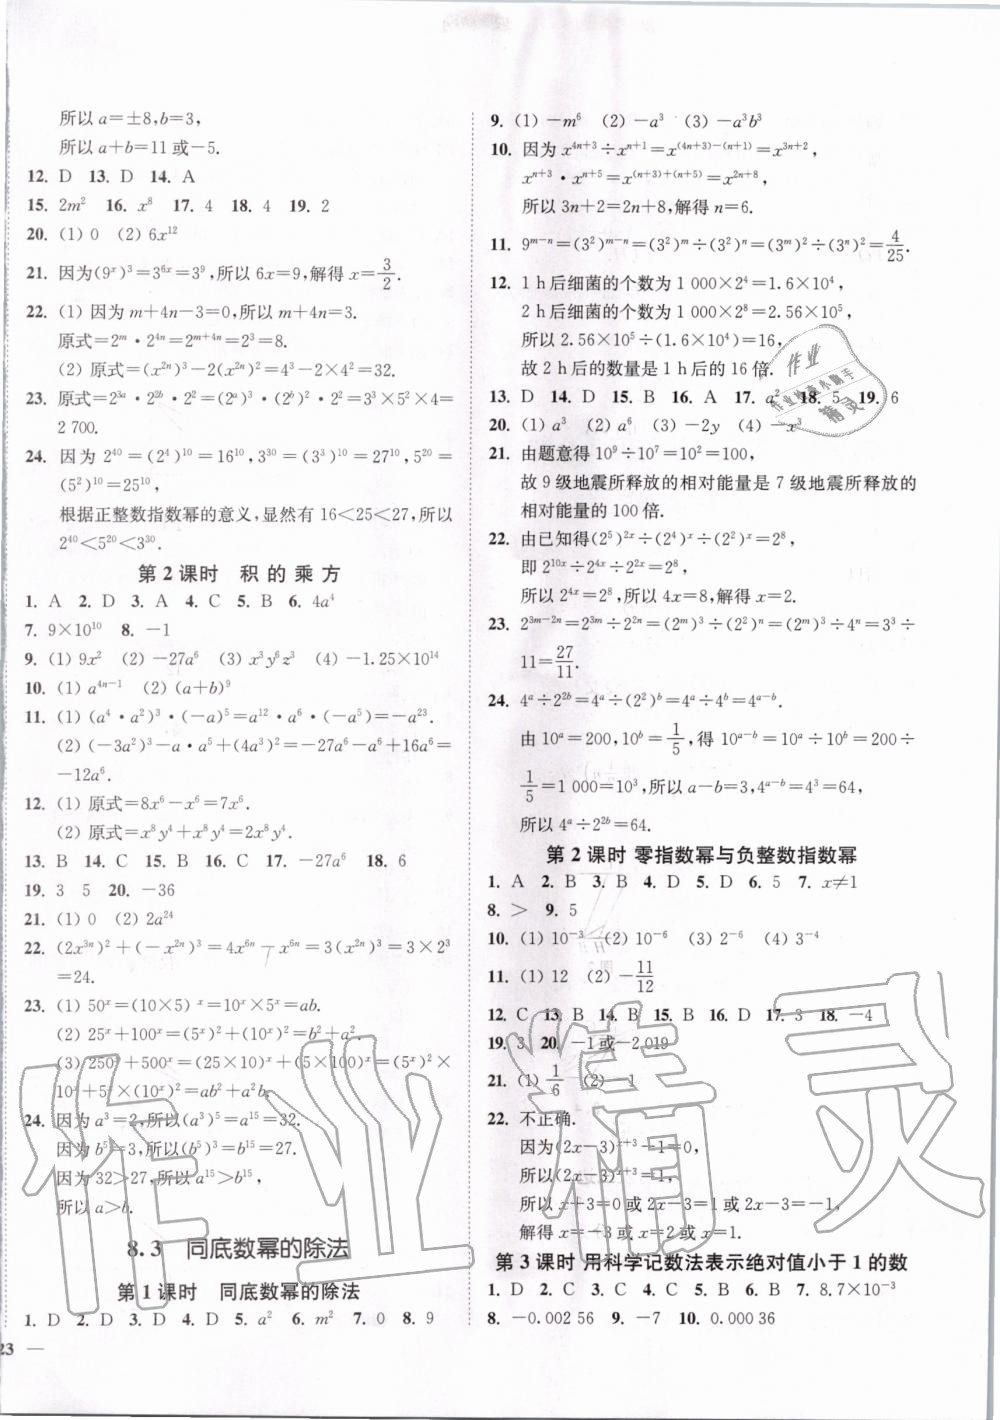 所以 a=±8,b=3,
所以 a+b=11 或-5.
12. D 13. D 14. A
15. 2m² 16. x⁸ 17. 4 18. 4 19. 2
20. (1) 0 (2) 6x¹²
21. 因为(9ˣ)³=3⁶ˣ=3⁹,所以 6x=9,解得 x=3/2.
22. (1) 因为 m+4n-3=0,所以 m+4n=3.
原式=2ᵐ·2⁴ⁿ=2ᵐ⁺⁴ⁿ=2³=8.
(2) 原式=(x²ⁿ)³-2(x²ⁿ)²=4³-2×4²=32.
23. 原式=2³ᵃ·2²ᵇ·2²=(2ᵃ)³·(2ᵇ)²·2²=3³×5²×4=
2 700.
24. 因为 2⁴⁰=(2⁴)¹⁰=16¹⁰,3³⁰=(3³)¹⁰=27¹⁰,5²⁰=
(5²)¹⁰=25¹⁰,
根据正整数指数幂的意义,显然有 16<25<27,所以
2⁴⁰<5²⁰<3³⁰.
第 2 课时 积的乘方
1. A 2. D 3. A 4. C 5. B 6. 4a⁴
7. 9×10¹⁰ 8. -1
9. (1) 9x² (2) -27a⁶ (3) x³y⁶z³ (4) -1.25×10¹⁴
10. (1) a⁴ⁿ⁻¹ (2) (a+b)⁹
11. (1) (a⁴·a²)³·(-a)⁵=a¹²·a⁶·(-a⁵)=-a²³.
(2) (-3a²)³-a·a⁵+(4a³)²=-27a⁶-a⁶+16a⁶=
-12a⁶.
12. (1) 原式=8x⁶-x⁶=7x⁶.
(2) 原式=x⁸y⁴+x⁸y⁴=2x⁸y⁴.
13. B 14. C 15. B 16. C 17. -27a⁶ 18. 6
19. 3 5 20. -36
21. (1) 0 (2) 2a²⁴
22. (2x³ⁿ)²+(-x²ⁿ)³=4x⁶ⁿ-x⁶ⁿ=3(x²ⁿ)³=3×2³
=24.
23. (1) 50ˣ=(10×5)ˣ=10ˣ×5ˣ=ab.
(2) 25ˣ+100ˣ=(5ˣ)²+(10ˣ)²=b²+a².
(3) 250ˣ+500ˣ=(25×10)ˣ+(5×100)ˣ=(5ˣ)²×
10ˣ+5ˣ×(10ˣ)²=ab²+a²b.
24. 因为 a³=2,所以(a³)⁵=a¹⁵=32.
因为 b⁵=3,所以(b⁵)³=b¹⁵=27.
因为 32>27,所以 a¹⁵>b¹⁵,
所以 a>b.
8.3 同底数幂的除法
第 1 课时 同底数幂的除法
1. D 2. D 3. D 4. D 5. a² 6. m² 7. 0 8. 9
23 —
9. (1) -m⁶ (2) -a³ (3) -a³b³
10. 因为 x⁴ⁿ⁺³÷xⁿ⁺¹=x⁽⁴ⁿ⁺³⁾⁻⁽ⁿ⁺¹⁾=x³ⁿ⁺²,
xⁿ⁺³·xⁿ⁺⁵=x⁽ⁿ⁺³⁾⁺⁽ⁿ⁺⁵⁾=x²ⁿ⁺⁸,
所以 3n+2=2n+8,解得 n=6.
11. 9ᵐ⁻ⁿ=(3²)ᵐ⁻ⁿ=(3²)ᵐ÷(3²)ⁿ=(3ᵐ)²÷(3ⁿ)²=4/25.
12. 1 h后细菌的个数为 1 000×2⁴=1.6×10⁴,
2 h后细菌的个数为 1 000×2⁸=2.56×10⁵,
所以 2.56×10⁵÷(1.6×10⁴)=16,
故 2 h后的数量是 1 h后的 16 倍.
13. D 14. D 15. B 16. A 17. a² 18. 5 19. 6
20. (1) a³ (2) a⁶ (3) -2y (4) -x³
21. 由题意得 10⁹÷10⁷=10²=100,
故 9 级地震所释放的相对能量是 7 级地震所释放的
相对能量的 100 倍.
22. 由已知得(2⁵)²ˣ÷(2⁴)ˣ÷(2²)ˣ=2⁸,
即 2¹⁰ˣ÷2⁴ˣ÷2²ˣ=2⁸,
所以 2⁴ˣ=2⁸,所以 4x=8,解得 x=2.
23. 2³ᵐ⁻²ⁿ=2³ᵐ÷2²ⁿ=(2ᵐ)³÷(2²)ⁿ=(2ᵐ)³÷4ⁿ=3³÷
11=27/11.
24. 4ᵃ÷2²ᵇ=4ᵃ÷(2²)ᵇ=4ᵃ÷4ᵇ=4ᵃ⁻ᵇ.
由 10ᵃ=200,10ᵇ=1/5,得 10ᵃ⁻ᵇ=10ᵃ÷10ᵇ=200÷
1/5=1 000=10³,所以 a-b=3,4ᵃ⁻ᵇ=4³=64,
所以 4ᵃ÷2²ᵇ=64.
第 2 课时 零指数幂与负整数指数幂
1. A 2. B 3. B 4. D 5. D 6. 5 7. x≠1
8. > 9. 5
10. (1) 10⁻³ (2) 10⁻⁶ (3) 2⁻⁶ (4) 3⁻⁴
11. (1) 12 (2) -11/12
12. C 13. B 14. B 15. B 16. D 17. 3 18. -4
19. 3 20. -1或-2 019
21. (1) 1/6 (2) -1
22. 不正确.
因为(2x-3)ˣ⁺³-1=0,
所以(2x-3)ˣ⁺³=1,
所以 x+3=0 或 2x-3=1 或 2x-3=-1,
解得 x=-3 或 x=2 或 x=1.
第 3 课时 用科学记数法表示绝对值小于 1 的数
1. D 2. C 3. C 4. C 5. D 6. B 7. 8.7×10⁻³
8. -0.002 56 9. -7 10. 0.000 36
作业
精灵
作业精灵